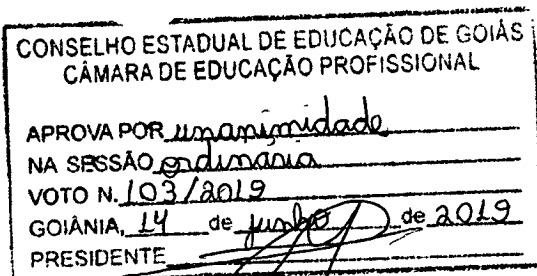 CONSELHO ESTADUAL DE EDUCAÇÃO DE GOIÁS
CÂMARA DE EDUCAÇÃO PROFISSIONAL
APROVA POR unanimidade
NA SESSÃO ordinária
VOTO N. 103/2019
GOIÂNIA, 14 de junho de 2019
PRESIDENTE